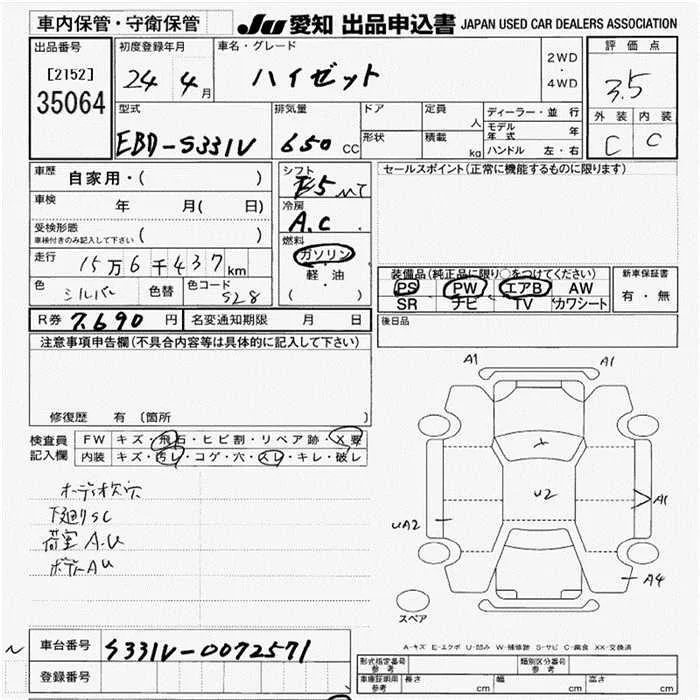 車内保管・守衛保管
JU 愛知 出品申込書 JAPAN USED CAR DEALERS ASSOCIATION
出品番号
[2152]
35064
初度登録年月
24 4月
車名・グレード
ハイゼット
2WD
・
4WD
評価点
3.5
外装 内装
C C
型式
EBD-S331V
排気量
650 CC
ドア
形状
定員
人
積載
kg
ディーラー・並行
モデル年式 年
ハンドル 左・右
車歴 自家用・( )
車検 年 月( 日)
受検形態
車検付きのみ記入して下さい ( )
走行 15万6千437km
色 シルバー 色替 色コード S28
シフト
F5 MT
冷房
A.C
燃料
ガソリン
軽・油
( ・ )
セールスポイント(正常に機能するものに限ります)
装備品(純正品に限り○をつけてください)
PS PW エアB AW
SR ナビ TV カワシート
新車保証書
有・無
R券 7.690 円 名変通知期限 月 日
後日品
注意事項申告欄(不具合内容等は具体的に記入して下さい)
修復歴 有〔箇所
検査員
記入欄
FW キズ・飛石・ヒビ割・リペア跡・X要
内装 キズ・汚レ・コゲ・穴・スレ・キレ・破レ
下廻りSC
荷室A.U
ボデーAU
A1 A1
U2
UA2
A1
A4
スペア
A-キズ E-エクボ U-凹み W-補修跡 S-サビ C-腐食 XX-交換済
車台番号 S331V-0072571
登録番号
型式指定番号
参考
類別区分番号
参考
車庫証明用
参考
長さ cm 幅 cm 高さ cm